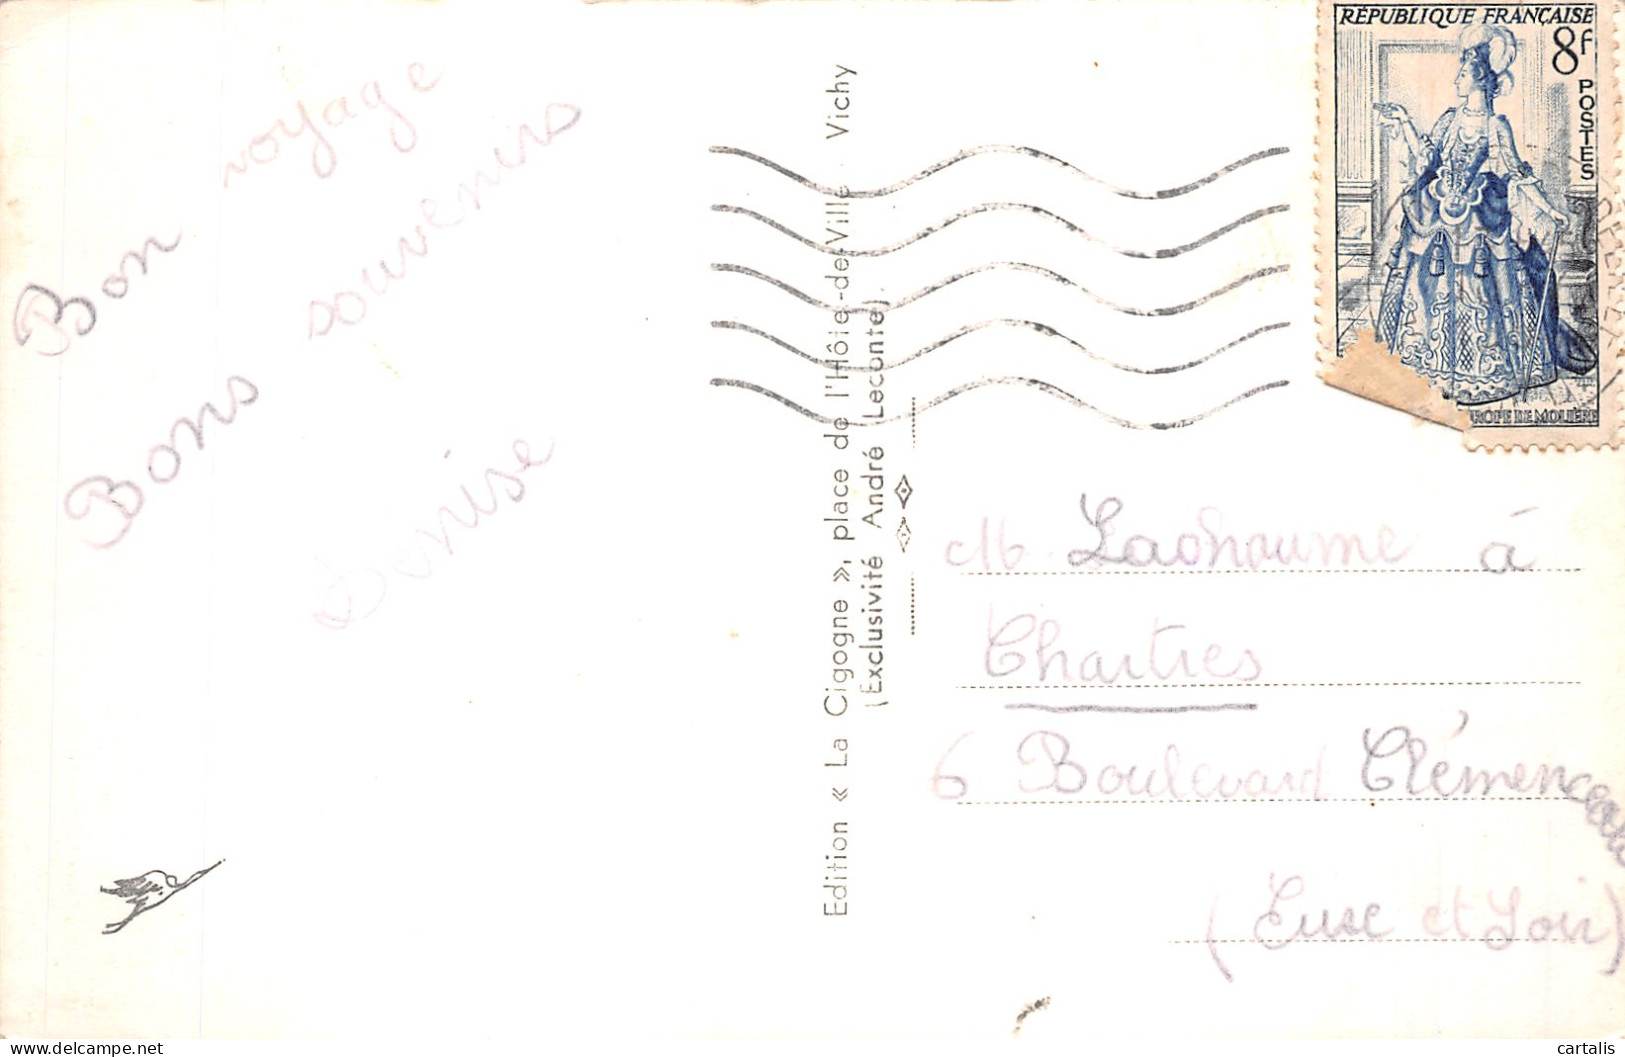 Bon voyage
Bons souvenirs
Denise
Edition « La Cigogne », place de l'Hôtel-de-Ville Vichy
(Exclusivité André Leconte).
RÉPUBLIQUE FRANÇAISE
8f
POSTES
ROPE DE MOLIÈRE
M Lachaume à
Chartres
6 Boulevard Clémenceau
(Eure et Loir)
cartalis